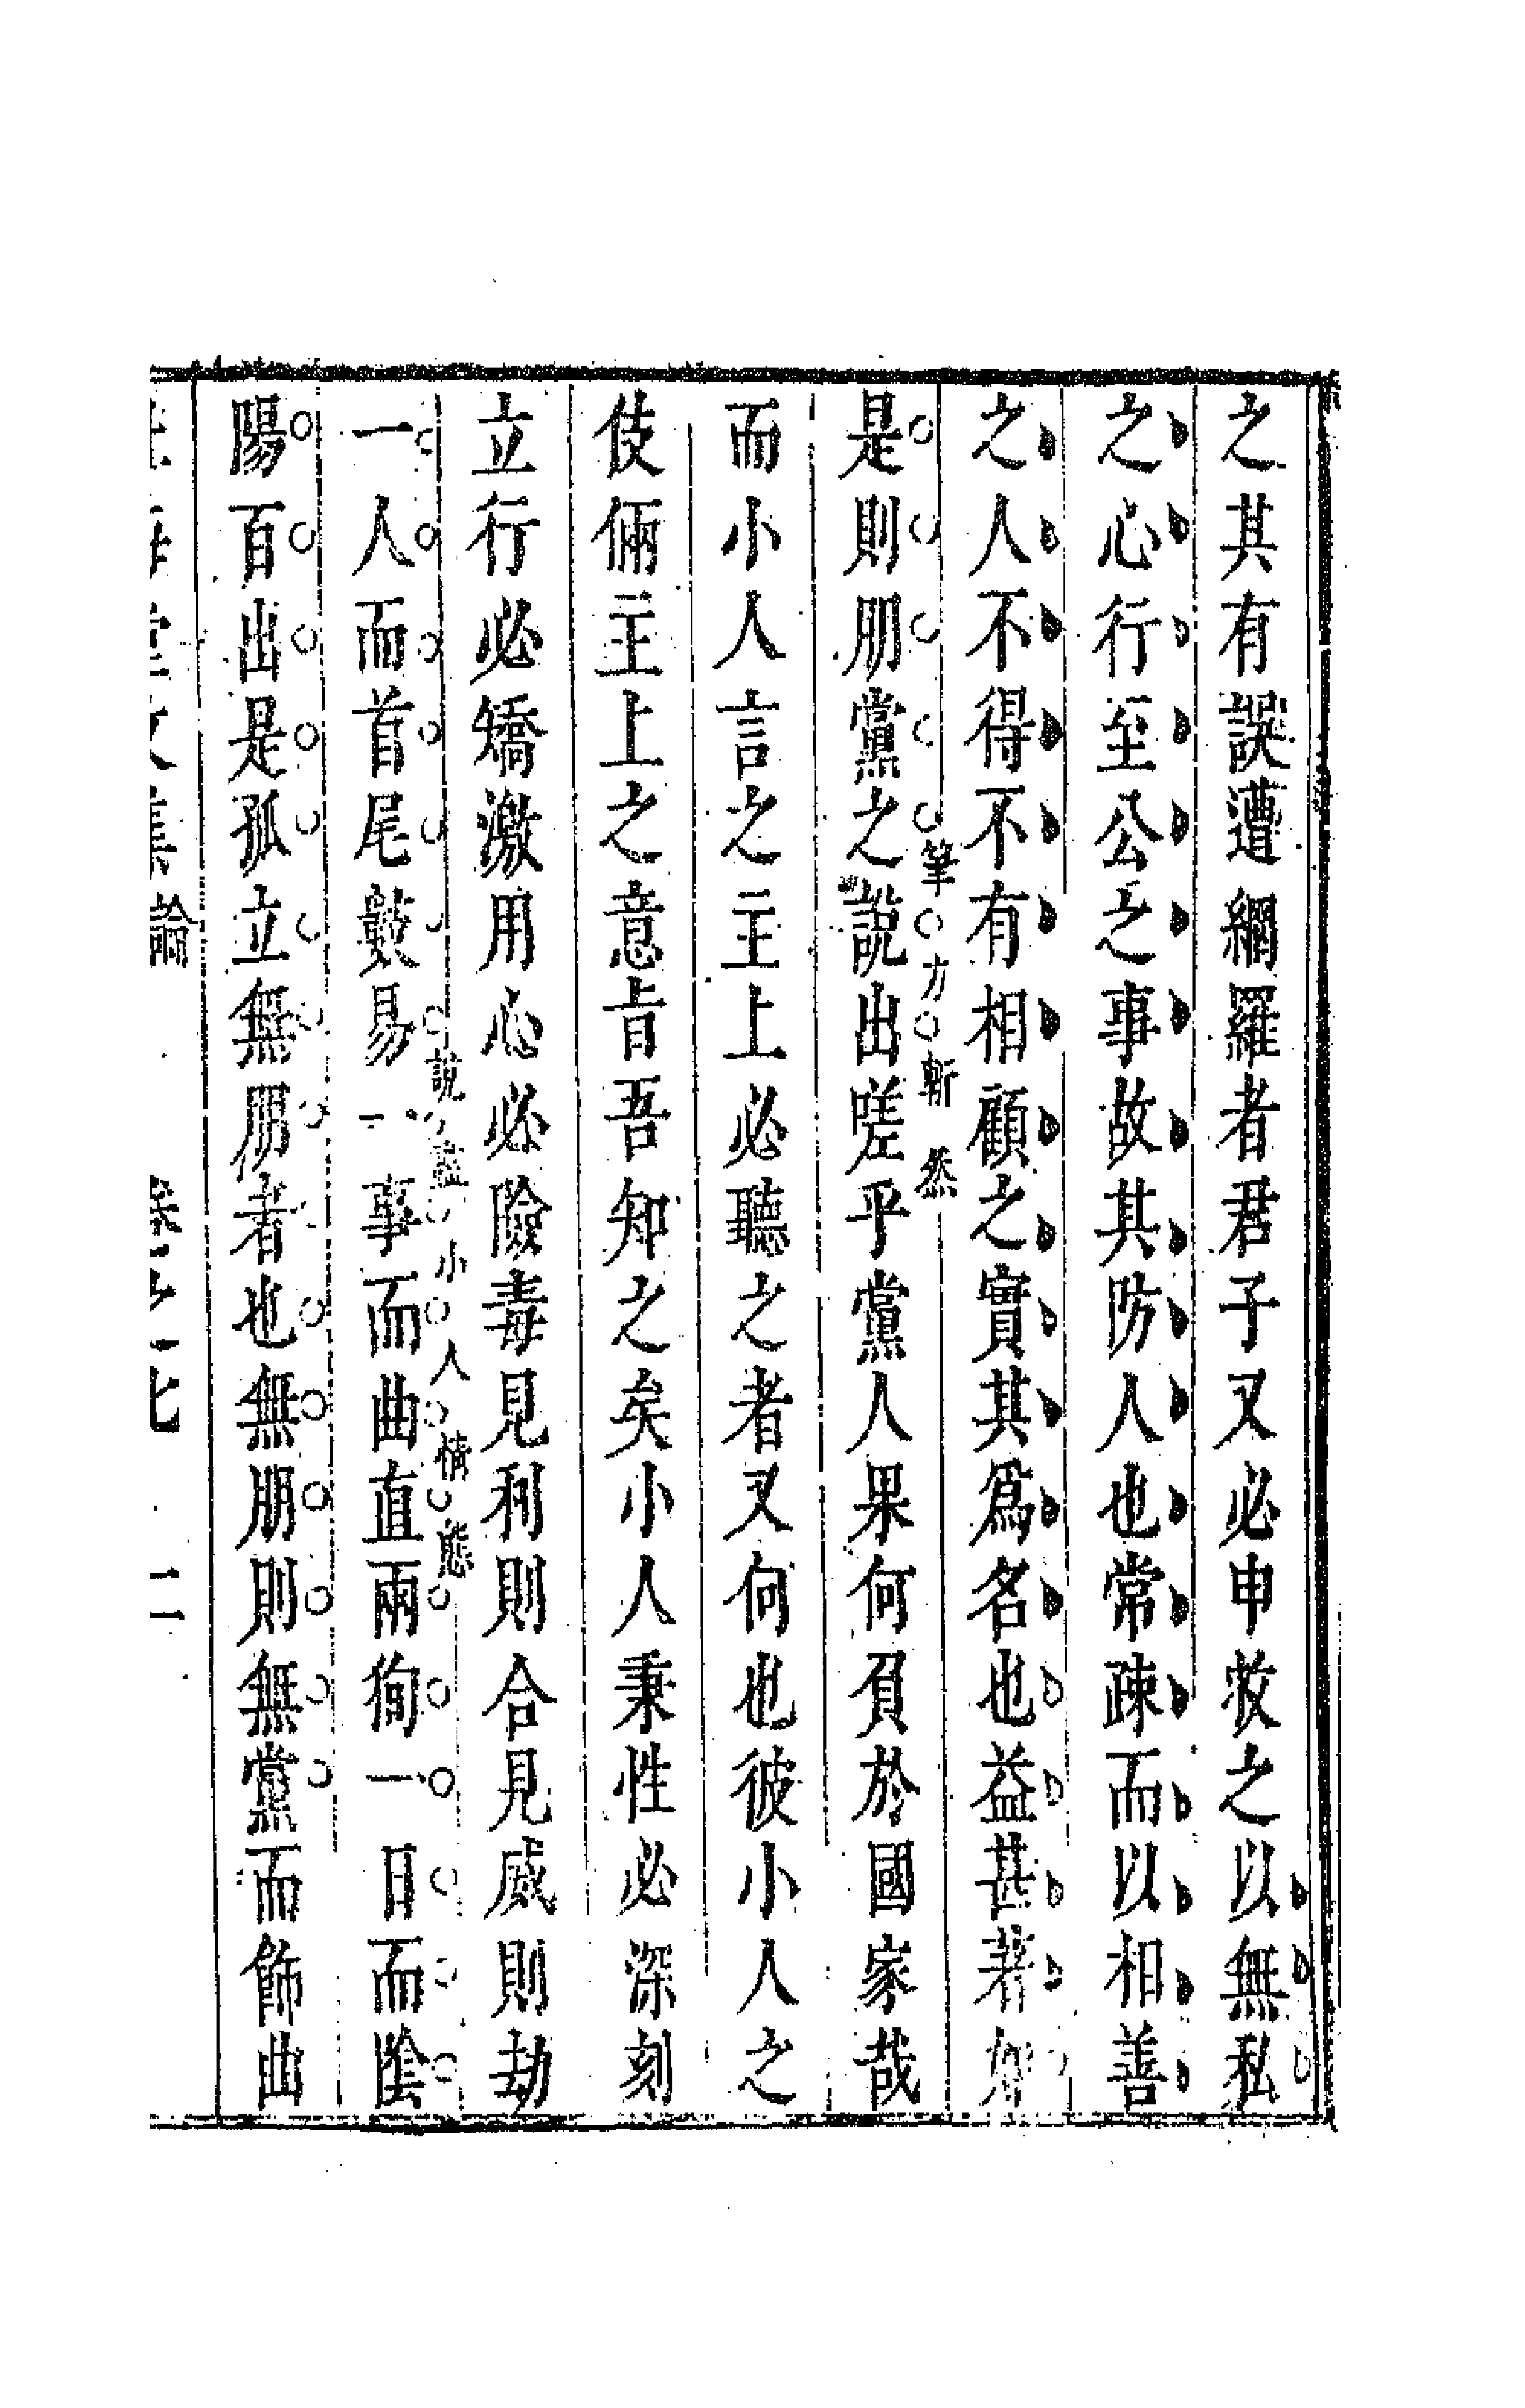 之其有誤遭網羅者君子又必申救之以無私
之心行至公之事故其防人也常疎而以相善
之人不得不有相顧之實其為名也益甚著如
是則朋黨之說出嗟乎黨人果何負於國家哉
筆力斬然
而小人言之主上必聽之者又何也彼小人之
伎倆主上之意旨吾知之矣小人秉性必深刻
立行必矯激用心必險毒見利則合見威則劫
一人而首尾數易一事而曲直兩徇一日而陰
說盡小人情態
陽百出是孤立無朋者也無朋則無黨而飾曲
堂文集 論 卷之七 二